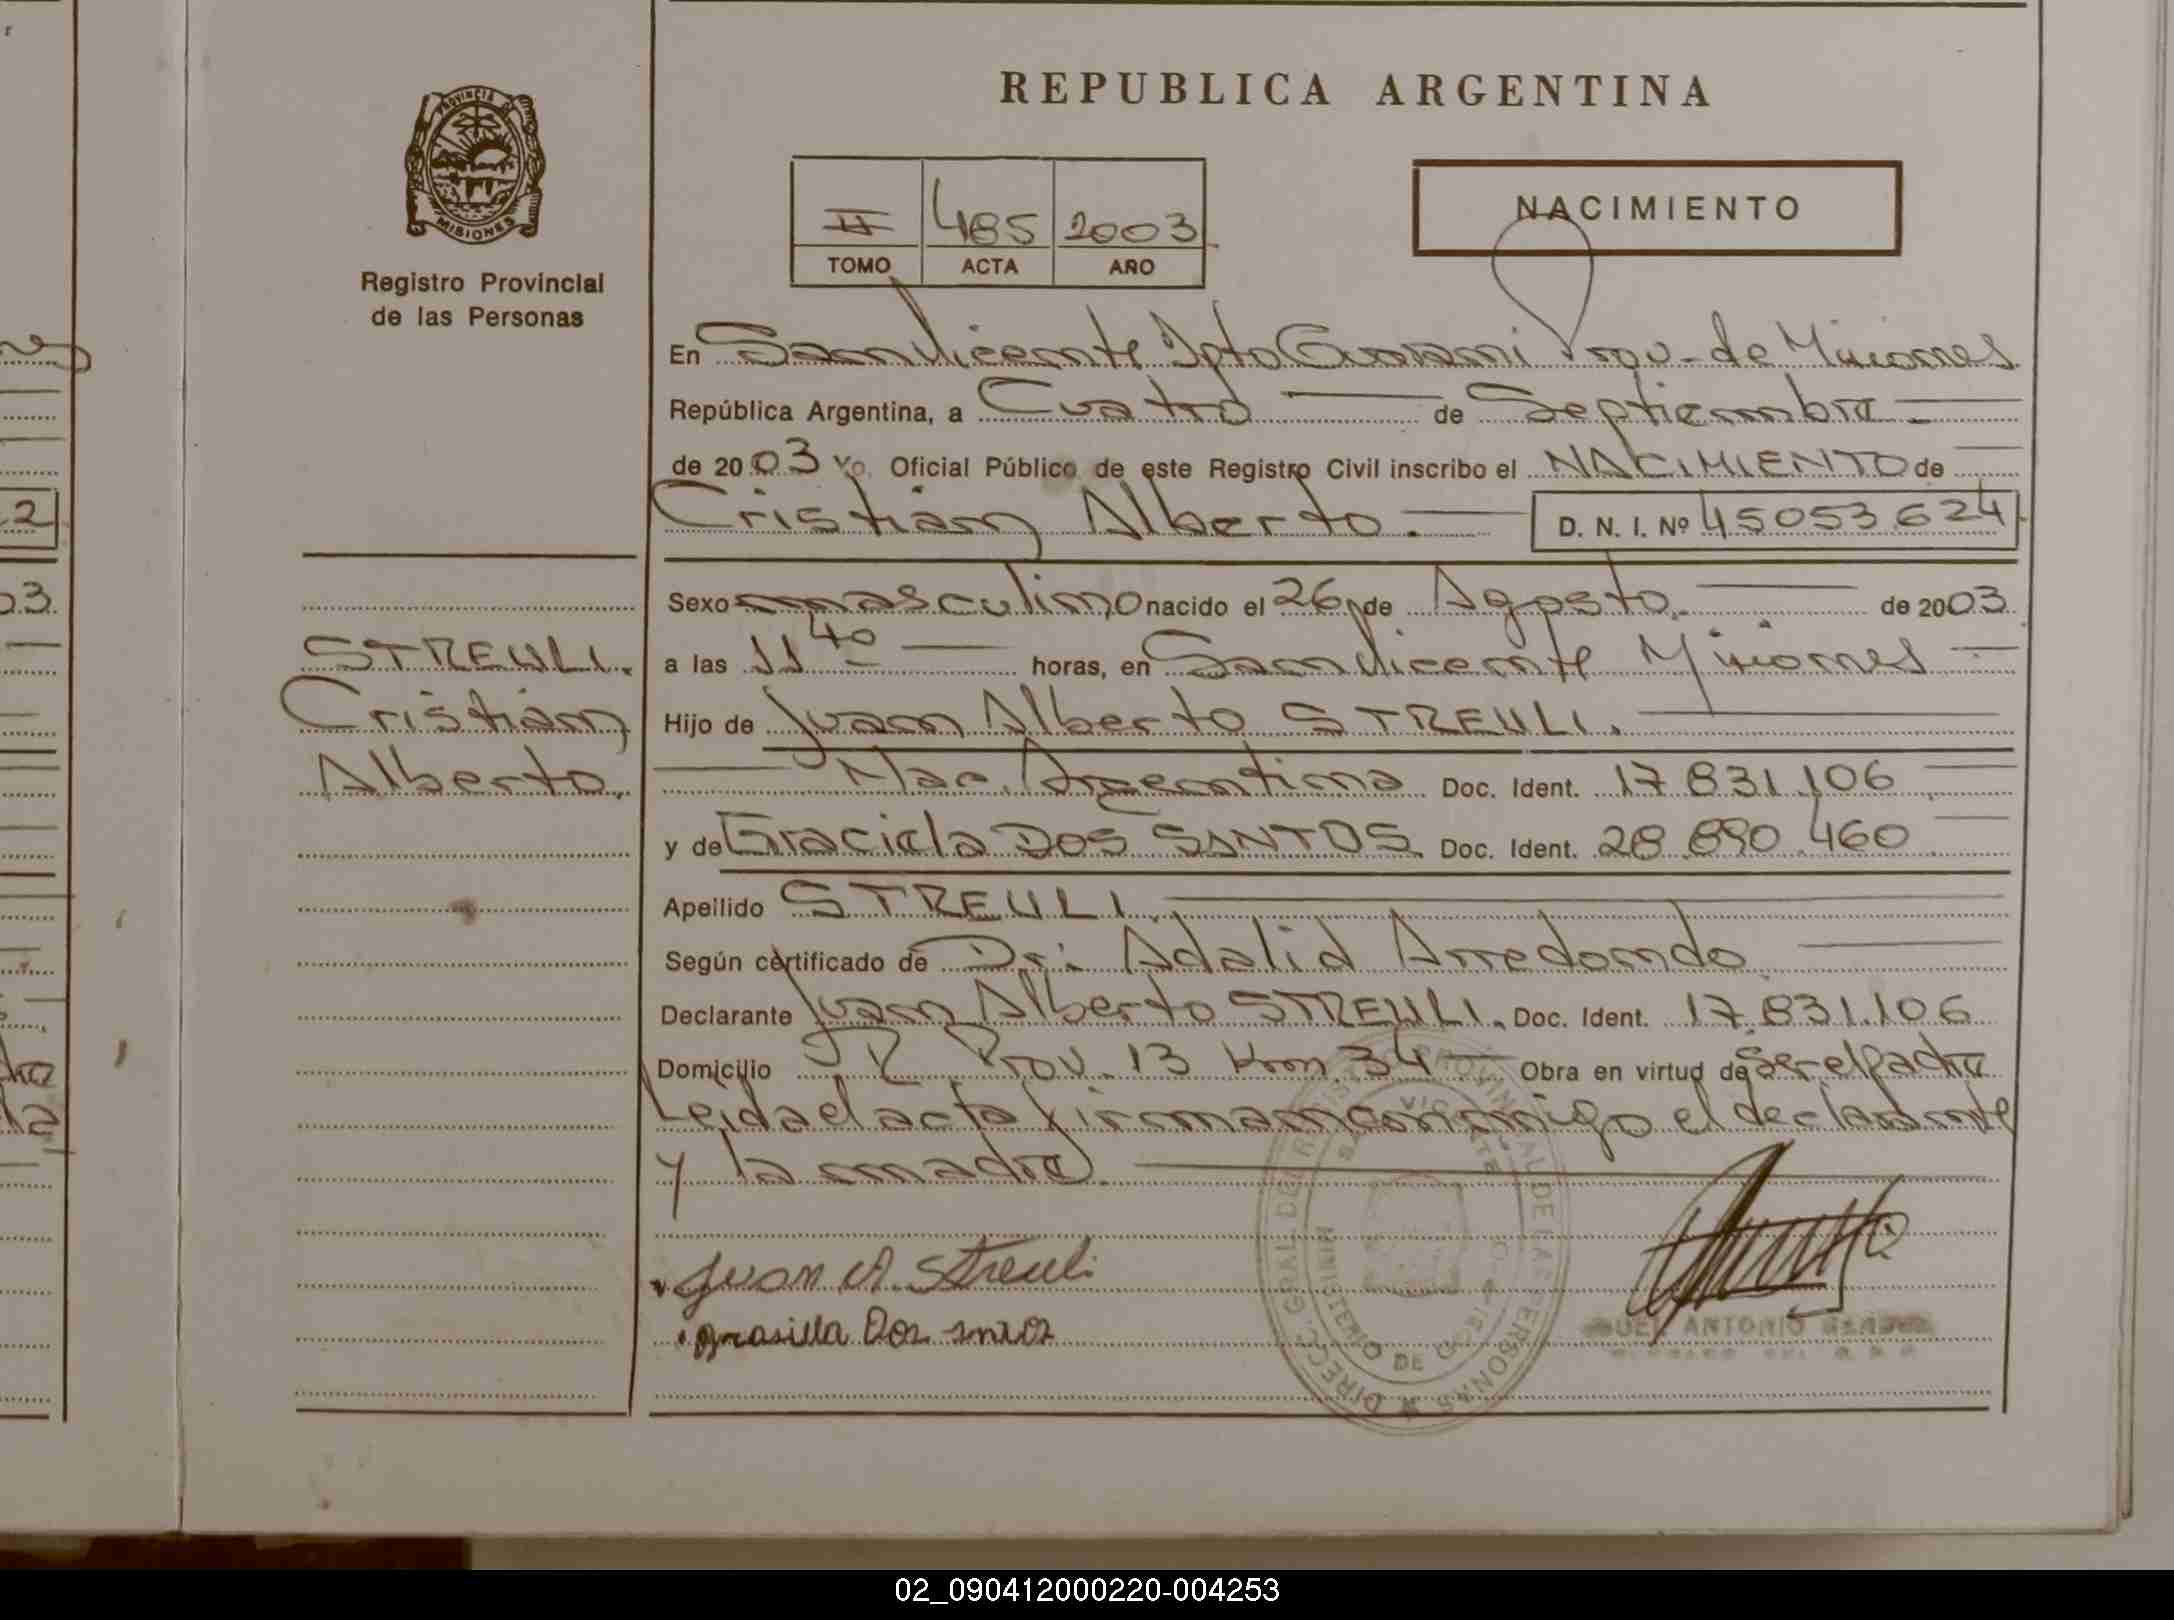 REPUBLICA ARGENTINA
PROVINCIA DE
MISIONES
Registro Provincial
de las Personas
II 485 2003
TOMO ACTA AÑO
NACIMIENTO
En San Vicente Dpto Guarani Prov. de Misiones
República Argentina, a Cuatro de Septiembre
de 2003 Yo Oficial Público de este Registro Civil inscribo el NACIMIENTO de
Cristian Alberto. D. N. I. Nº 45053624
Sexo masculino nacido el 26 de Agosto. de 2003
a las 11 40 horas, en San Vicente Misiones
Hijo de Juan Alberto STREULI.
Nac. Argentina Doc. Ident. 17.831.106
y de Graciela DOS SANTOS. Doc. Ident. 28.890.460
Apellido STREULI.
Según certificado de Dr: Adalid Arredondo.
Declarante Juan Alberto STREULI. Doc. Ident. 17.831.106
Domicilio R Prov. 13 Km 34 Obra en virtud de ser el padre
Leida el acta firman conmigo el declarante
y la madre.
STREULI.
Cristian
Alberto.
Juan A. Streuli
grasilla Dos
DIRECC. GRAL. DEL REGISTRO PROVINCIAL DE LAS PERSONAS
MINISTERIO DE GOBIERNO
SAN VICENTE
ANTONIO
02_090412000220-004253